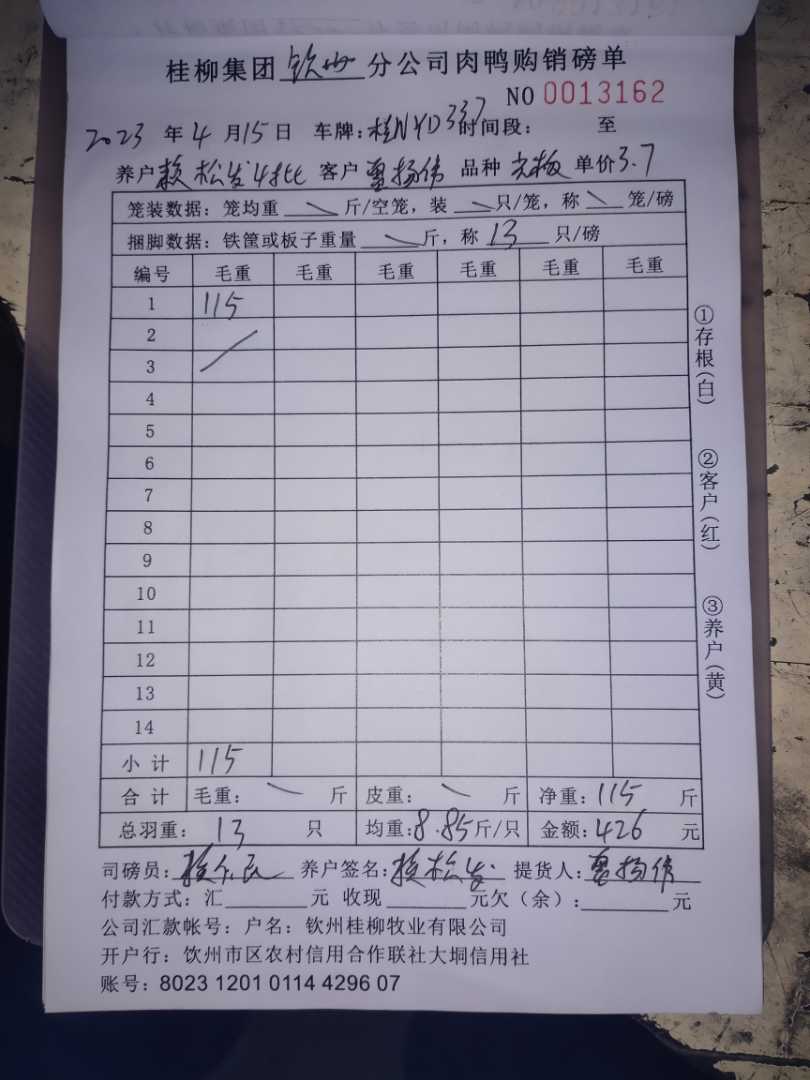 桂柳集团 钦州 分公司肉鸭购销磅单
NO 0013162
2023 年 4 月 15 日 车牌：桂NYD337 时间段： 至
养户 赖松发4批 客户 扬伟 品种 光板 单价 3.7
笼装数据：笼均重 斤/空笼，装 只/笼，称 笼/磅
捆脚数据：铁筐或板子重量 斤，称 13 只/磅
编号 毛重 毛重 毛重 毛重 毛重 毛重
1 115
2
3
4
5
6
7
8
9
10
11
12
13
14
小计 115
合计 毛重： 斤 皮重： 斤 净重：115 斤
总羽重：13 只 均重：8.85 斤/只 金额：426 元
司磅员： 养户签名：赖松发 提货人：扬伟
付款方式：汇 元 收现 元欠（余）： 元
公司汇款帐号：户名：钦州桂柳牧业有限公司
开户行：饮州市区农村信用合作联社大垌信用社
账号：8023 1201 0114 4296 07
①存根（白）
②客户（红）
③养户（黄）